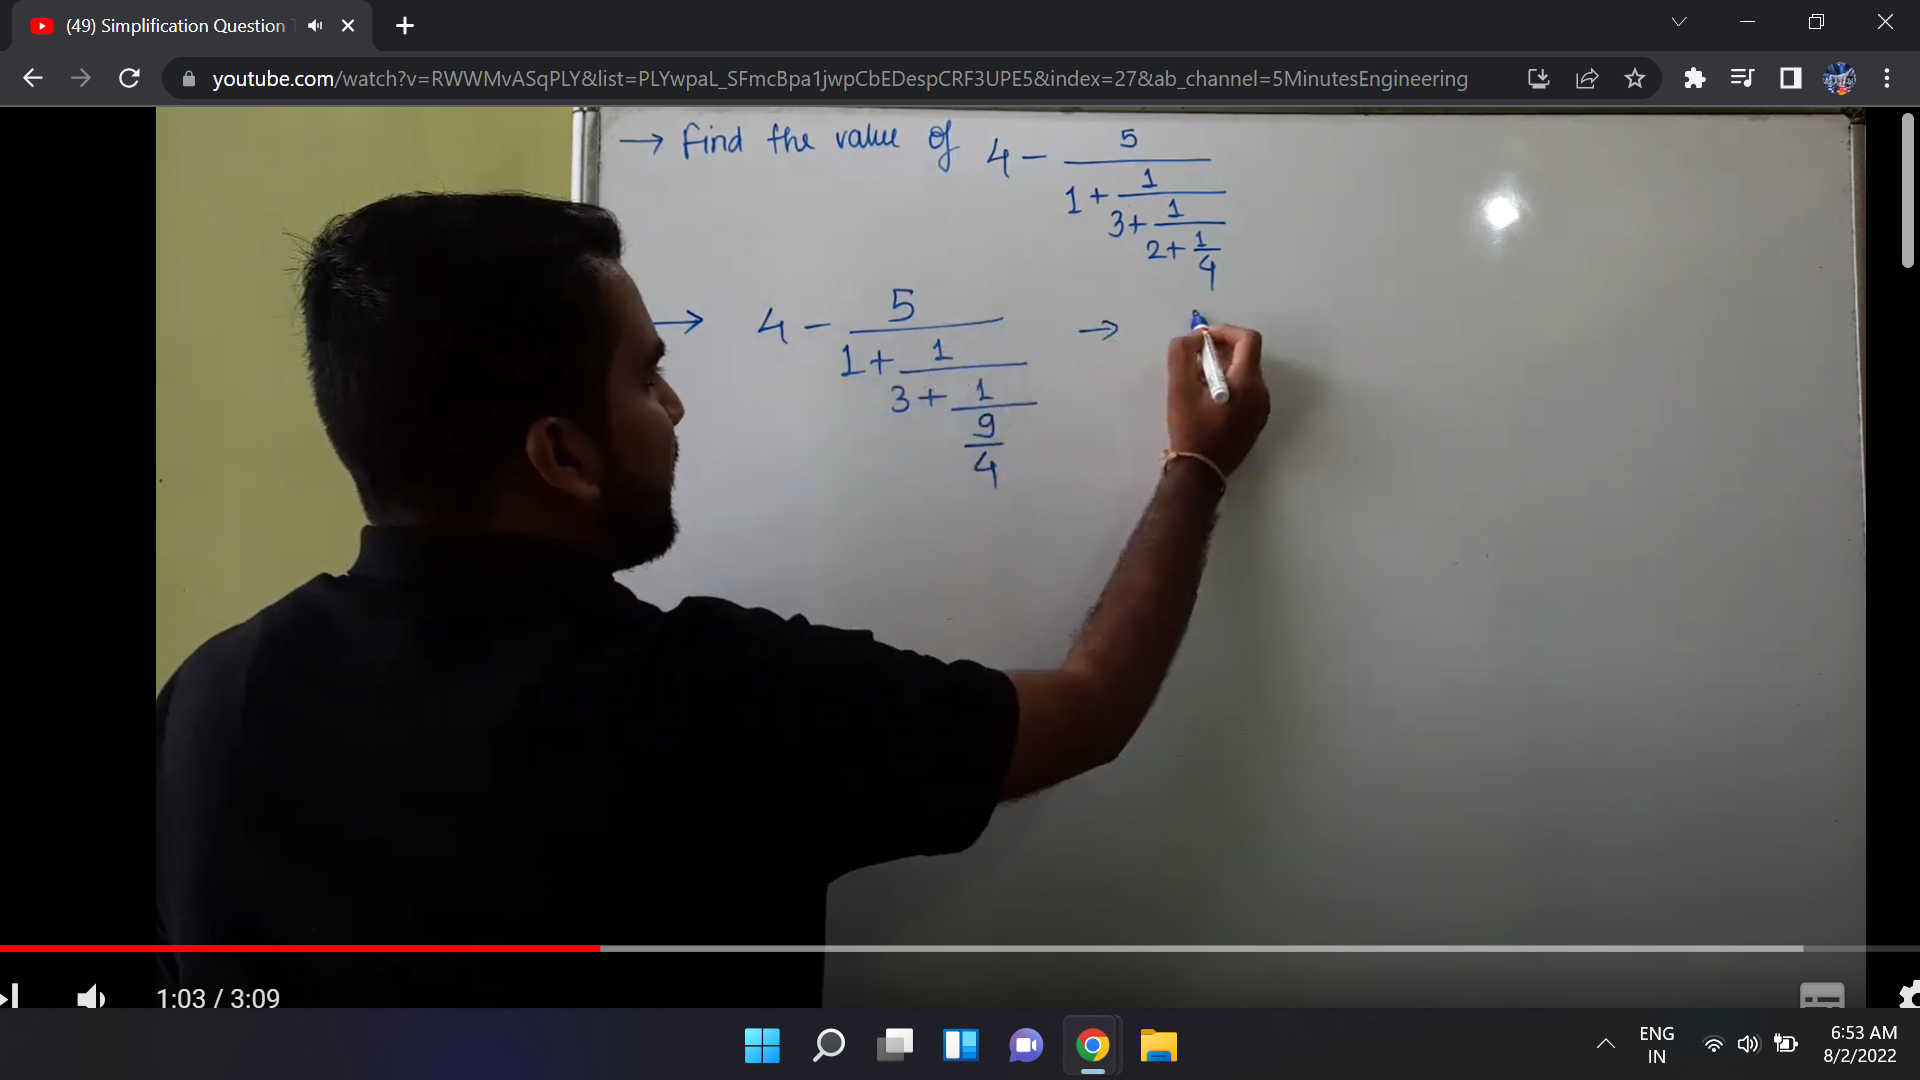 (49) Simplification Question
youtube.com/watch?v=RWWMvASqPLY&list=PLYwpaL_SFmcBpa1jwpCbEDespCRF3UPE5&index=27&ab_channel=5MinutesEngineering
→ Find the value of 4 - 5
1 + 1
3 + 1
2 + 1
4
→ 4 - 5 →
1 + 1
3 + 1
9
4
1:03 / 3:09
ENG
IN
6:53 AM
8/2/2022